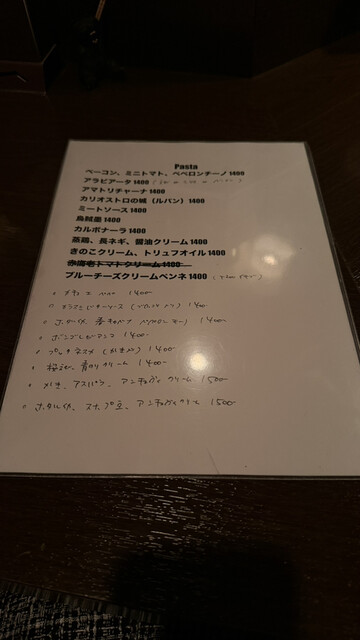 Pasta
ベーコン、ミニトマト、ペペロンチーノ 1400
アラビアータ 1400
アマトリチャーナ 1400
カリオストロの城（ルパン）1400
ミートソース 1400
烏賊墨 1400
カルボナーラ 1400
蒸鶏、長ネギ、醤油クリーム 1400
きのこクリーム、トリュフオイル 1400
赤海老トマトクリーム 1400
ブルーチーズクリームペンネ 1400
1400-
140
ホタルイカ 1400-
ボンゴレビアンコ 1400
1400
桜えび、青のりクリーム 1400
アスパラ、アンチョビクリーム 1500-
ホタルイカ、スナップ豆、アンチョビクリーム 1500-